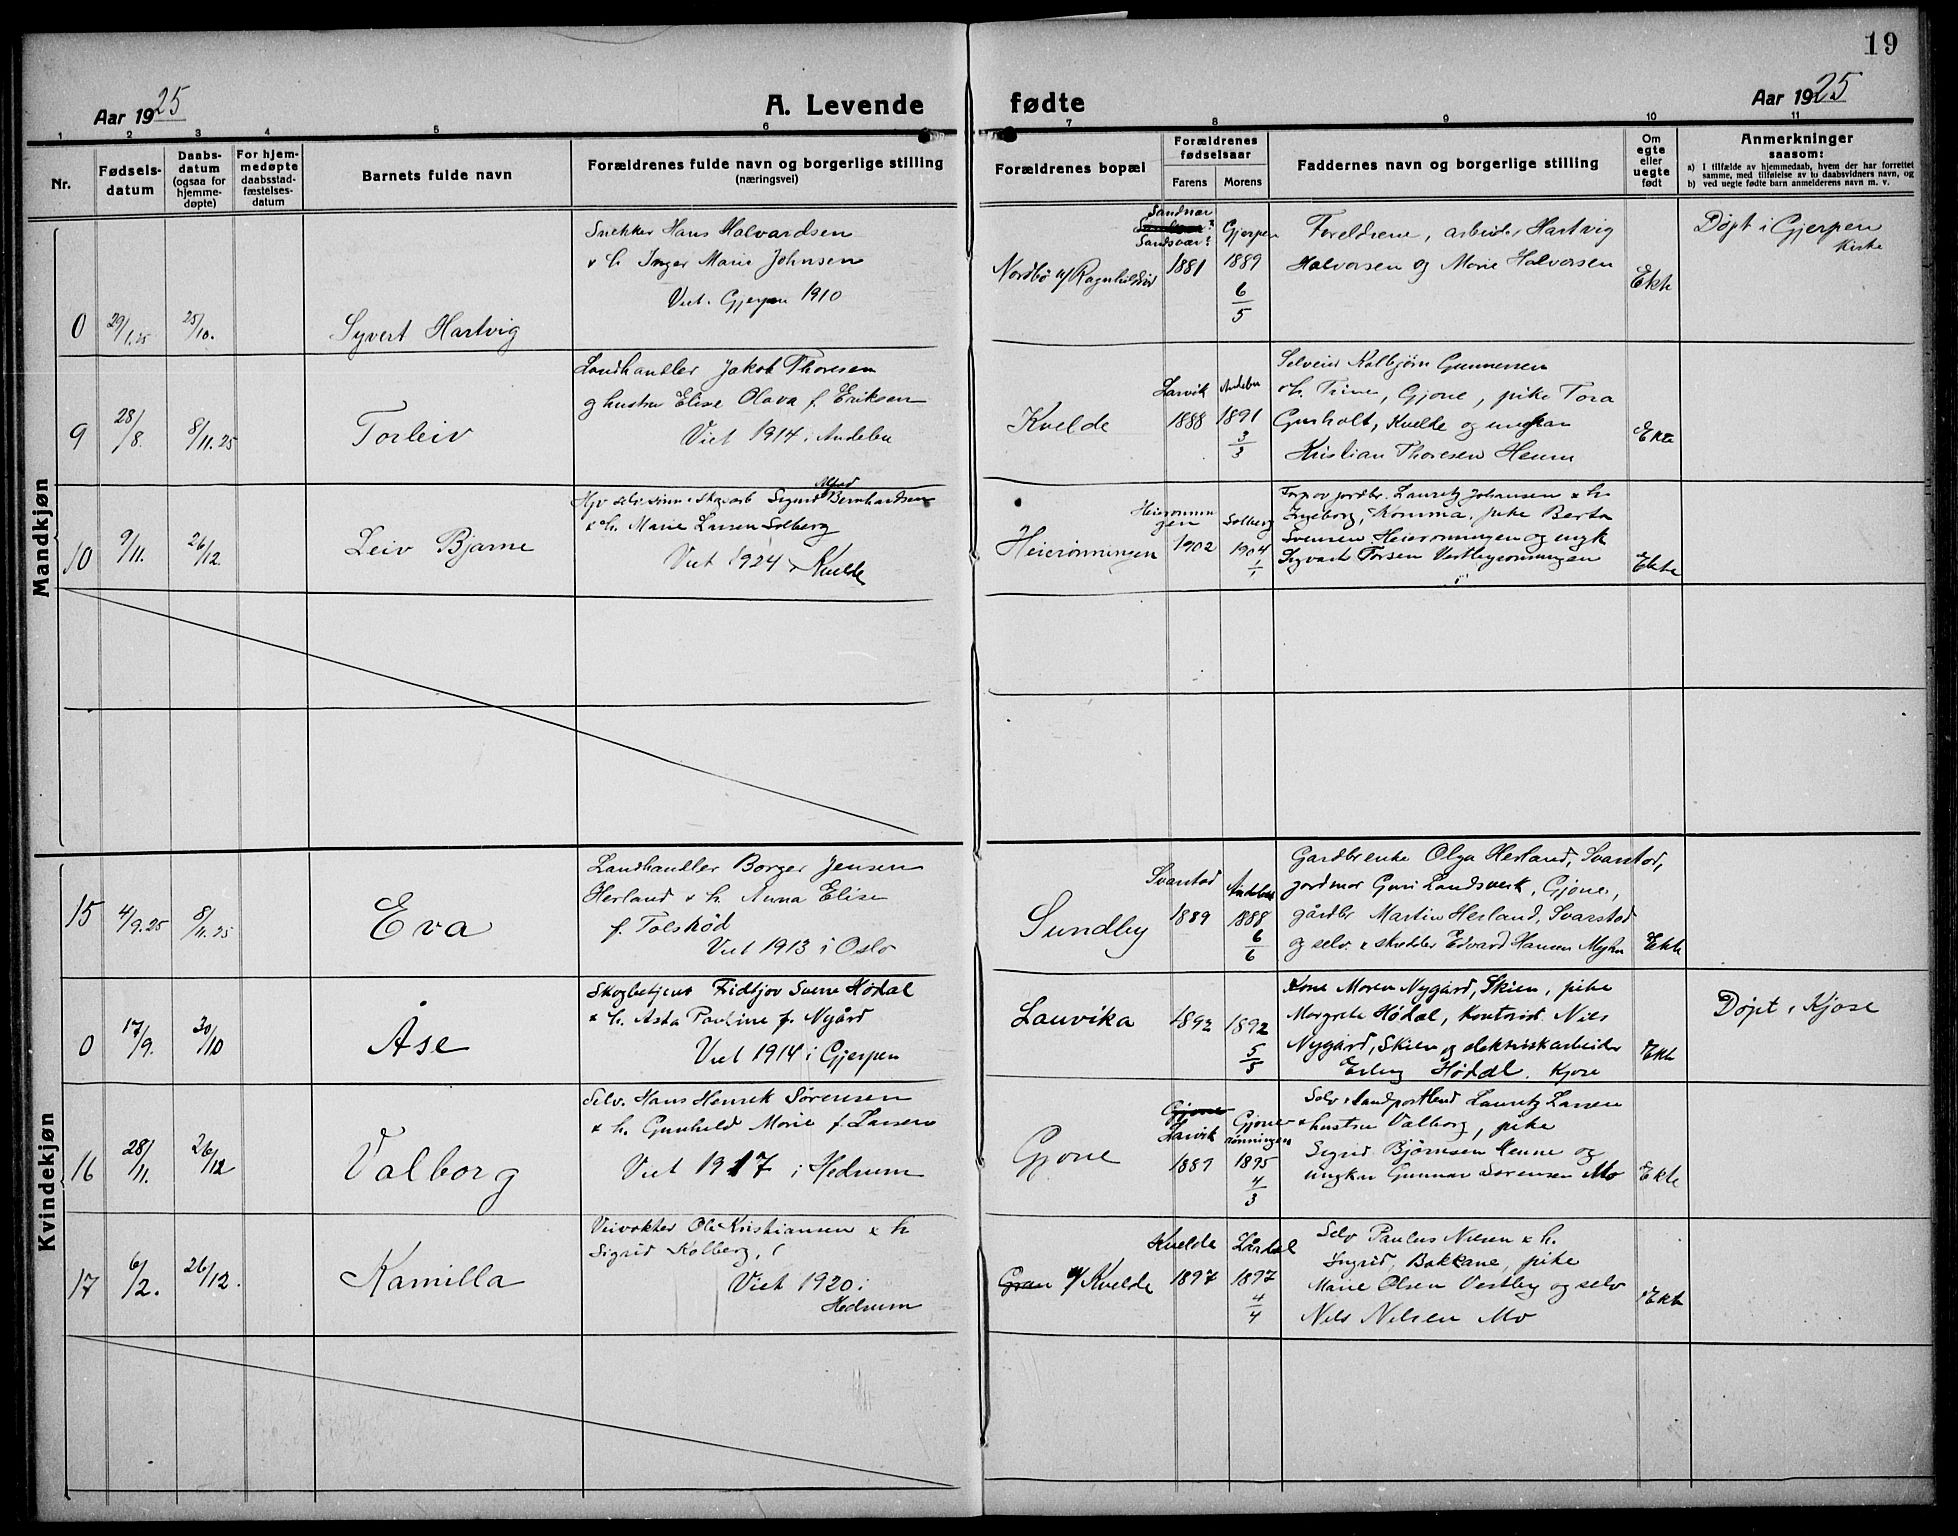 19
Aar 1925
A. Levende fødte
Aar 1925
1 2 3 4 5 6 7 8 9 10 11
Nr.
Fødsels-
datum
Daabs-
datum
(ogsaa for
hjemme-
døpte)
For hjem-
medøpte
daabsstad-
fæstelses-
datum
Barnets fulde navn
Forældrenes fulde navn og borgerlige stilling
(næringsvei)
Forældrenes bopæl
Forældrenes
fødselsaar
Farens Morens
Faddernes navn og borgerlige stilling
Om
egte
eller
uegte
født
Anmerkninger
saasom:
a) I tilfælde av hjemmedaab, hvem der har forrettet
samme, med tilføielse av to daabsvidners navn, og
b) ved uegte fødte barn anmelderens navn m. v.
Mandkjøn
0 29/1.25 25/10. Syvert Hartvig
Snekker Hans Halvardsen
& h. Inger Marie Johnsen
Viet. Gjerpen 1910
Nordbø u/
Sandsvær?
1881
Gjerpen
1889
6/5
Foreldrene, arbeider Hartvig
Halvorsen og Marie Halvorsen
Ekte
Døpt i Gjerpen
Kirke
9 28/8. 8/11.25 Torleiv
Landhandler Jakob Thoresen
og hustru Elise Olava f. Eriksen
Viet 1914 i Andebu
Kvelde
Larvik
1888
Andebu
1891
3/3
Selveier Kolbjørn Gunnersen
& h. Trine, Gjone, pike Tora
Gusholt, Kvelde og ungkar
Kristian Thoresen Henum
Ekte
10 9/11. 26/12. Leiv Bjarne
Sigurd Alfred Bernhardsen
& h. Marie Larsen Solberg
Viet 1924 i Kvelde
Heierønningen
1902
Solberg
1904
1/1
jordbr. Lauritz Johansen & h.
Ingeborg, Komma, pike Berta
Svensen, Heierønningen og ungk
Sigvart Torsen Vestbyrønningen
Ekte
Kvindekjøn
15 4/9.25 8/11.25 Eva
Landhandler Borger Jensen
Herland & h. Anna Elise
f. Tolsrød
Viet 1913 i Oslo
Sundby
Svarstad
1889
Andebu
1888
6/6
Gardbrenke Olga Herland, Svarstad,
jordmor Guri Landsverk, Gjone,
gårdbr Martin Herland, Svarstad
og selv. & skredder Edvard Hansen
Ekte
0 17/9. 30/10 Åse
Skogbetjent Fridtjov Svenn Hødal
& h. Asta Pauline f. Nygård
Viet 1914 i Gjerpen
Lauvika
1892
1892
5/5
Kone Maren Nygård, Skien, pike
Margrete Hødal, kontorist Nils
Nygård, Skien og elektriskarbeider
Erling Hødal, Kjose
Ekte
Døpt i Kjose
16 28/11. 26/12 Valborg
Selv. Hans Henrik Sørensen
& h. Gunhild Marie f. Larsen
Viet 1917 i Hedrum
Gjone
Gjone
Larvik
1889
Gjone-
rønningen
1895
4/3
Selv & landpostbud Lauritz Larsen
& hustru Valborg, pike
Sigrid Bjørnsen Henne og
ungkar Gunnar Sørensen Mo
Ekte
17 6/2. 26/12. Kamilla
Veivokter Ole Kristiansen & h
Sigrid Kolberg,
Viet 1920 i
Hedrum
Gran u/ Kvelde
Kvelde
1897
Lårdal
1897
4/4
Selv Paulus Nilsen & h.
Ingrid, Bakkane, pike
Marie Olsen Vestby og selv
Nils Nilsen Mo
Ekte